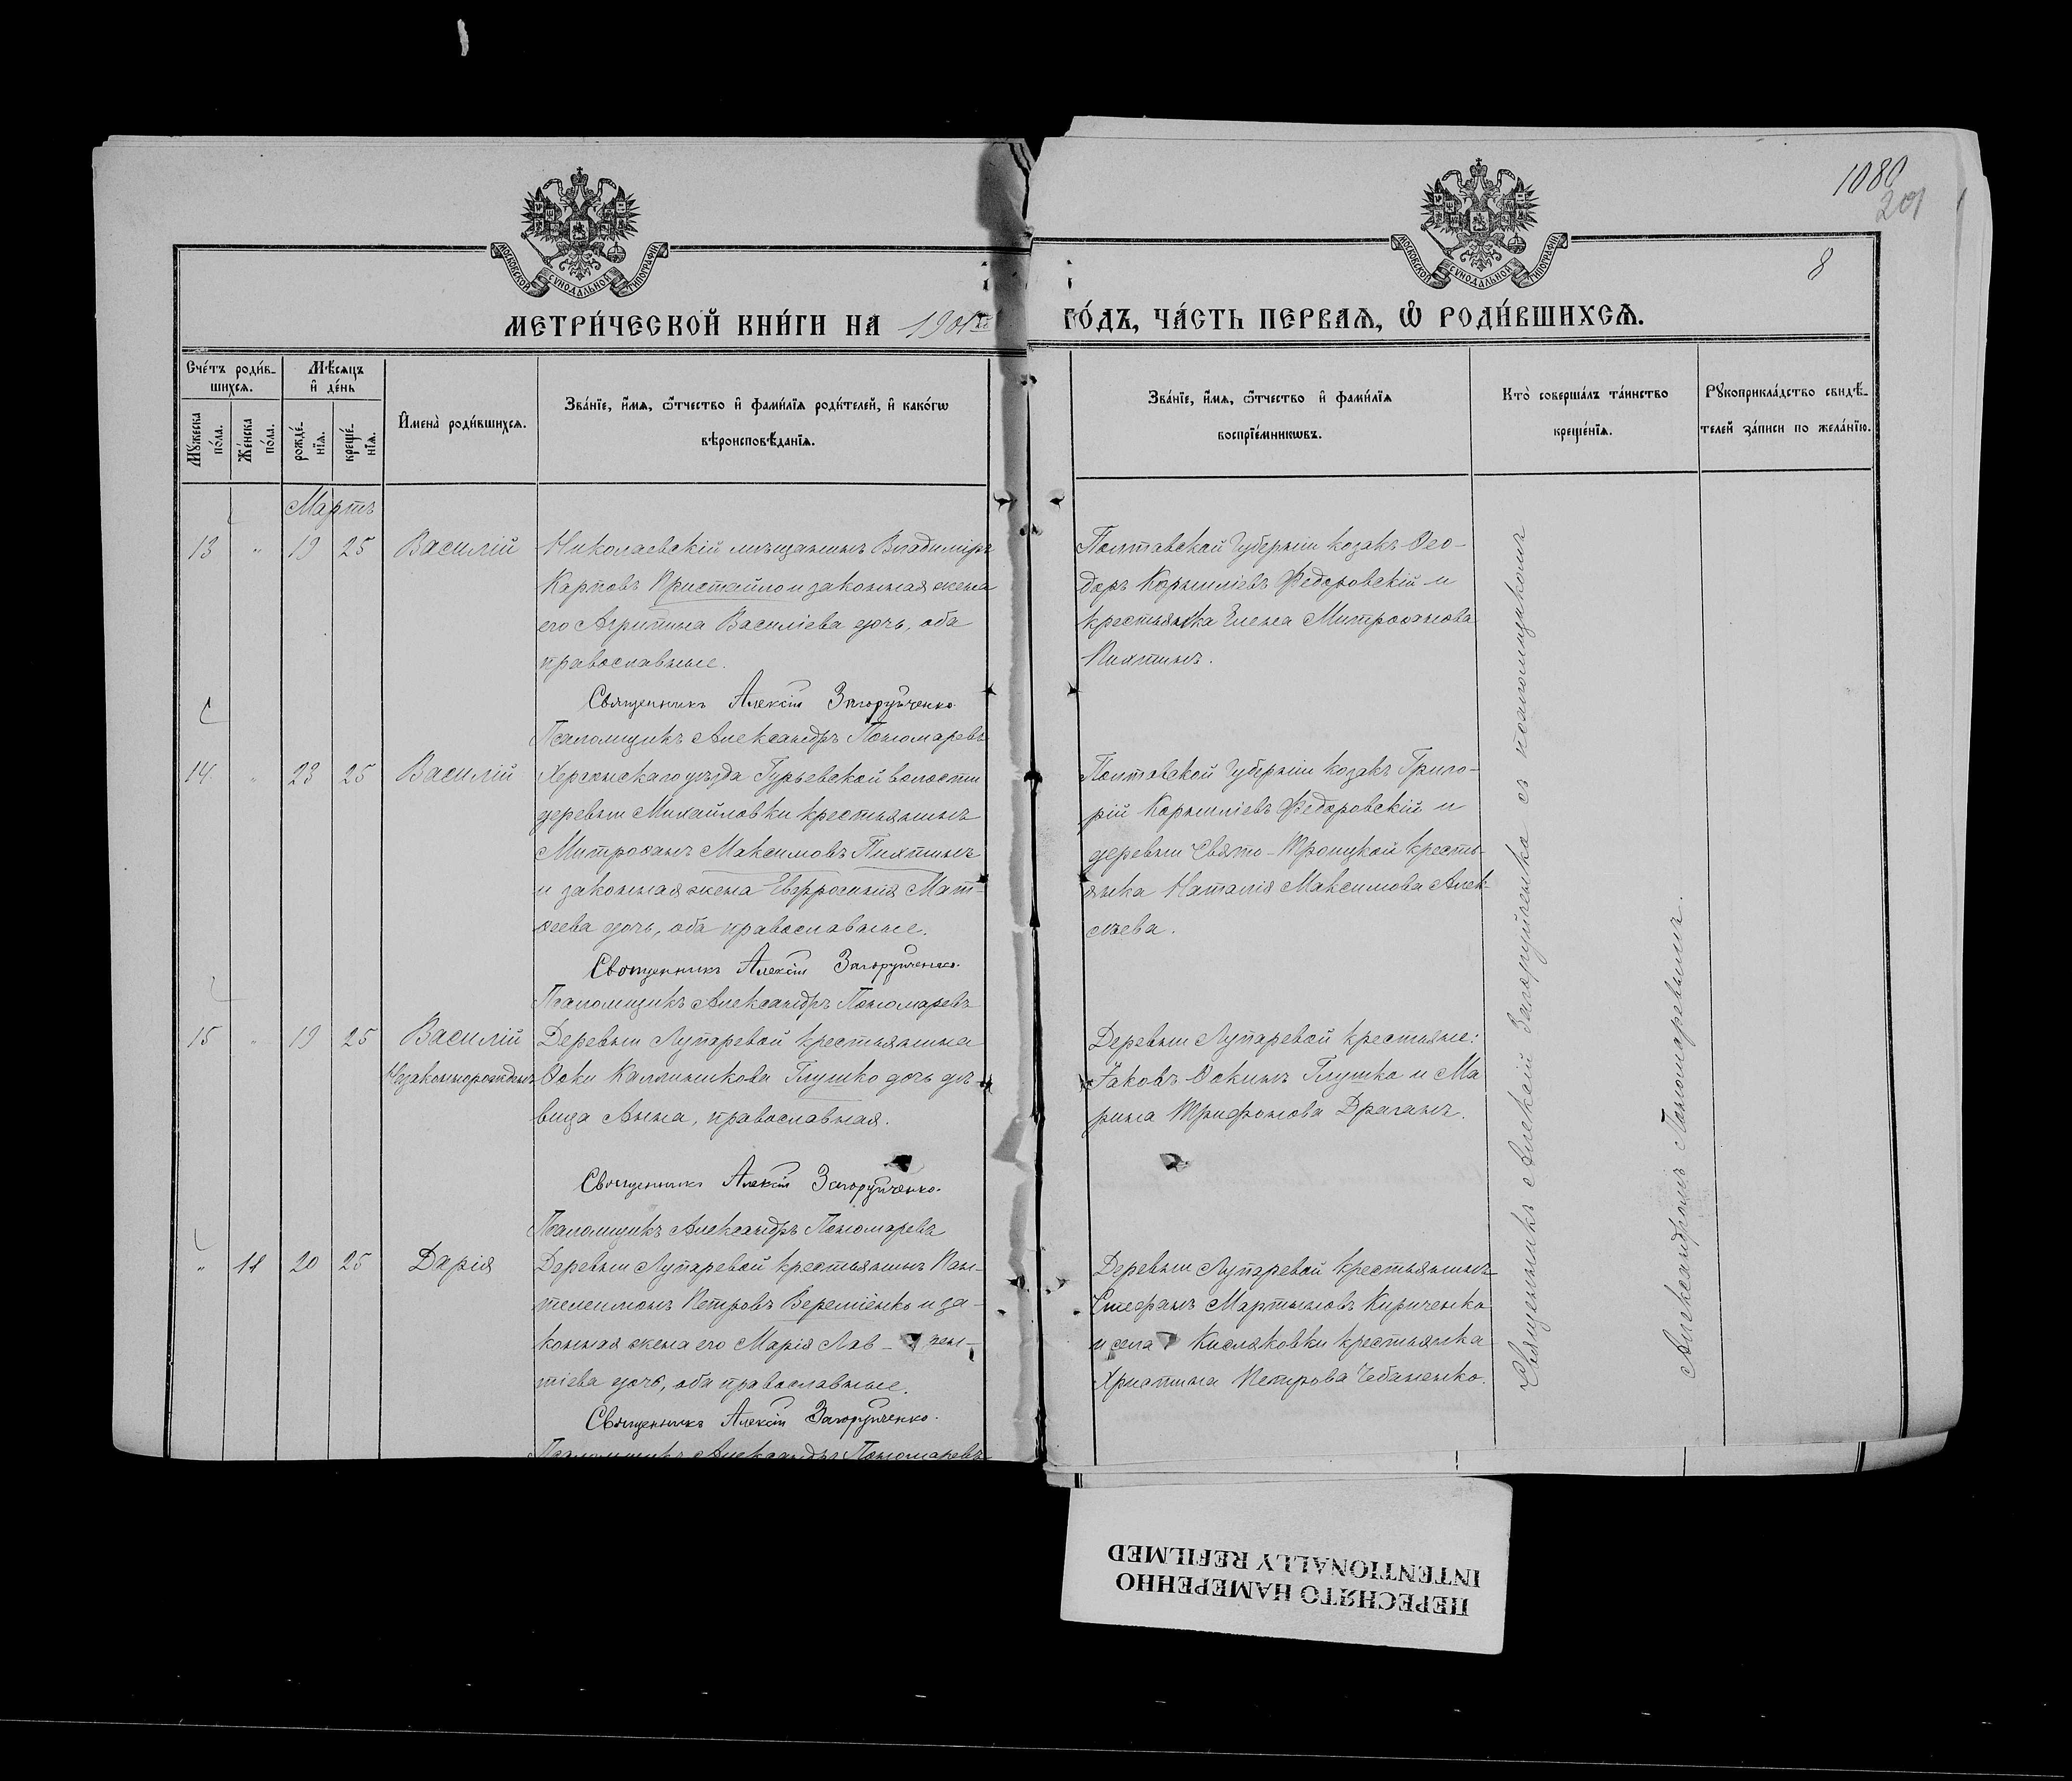 1080
201
8
МОСКОВСКОЙ СѴНОДАЛЬНОЙ ТИПОГРАФІИ
МОСКОВСКОЙ СѴНОДАЛЬНОЙ ТИПОГРАФІИ
МЕТРИ́ЧЕСКОЙ КНИ́ГИ НА 1901й
ГО́ДЪ, ЧА́СТЬ ПЕРВАѦ, Ѡ҆ РОДИ́ВШИХСѦ.
Сче́тъ роди́в-
шихсѧ.
Мꙋжеска по́ла.
Же́нска по́ла.
Мѣ́сѧцъ
и҆ де́нь
рожде́-нїѧ.
креще́-нїѧ.
И҆мена̀ роди́вшихсѧ.
Зва́нїе, и҆́мѧ, ѻ҆́тчество и҆ фами́лїѧ роди́телей, и҆ како́гѡ
вѣроисповѣ́данїѧ.
Зва́нїе, и҆́мѧ, ѻ҆́тчество и҆ фами́лїѧ
воспрїе́мникѡвъ.
Кто̀ соверша́лъ та́инство
креще́нїѧ.
Рꙋкоприкла́дство свидѣ́-
телей за́писи по жела́нїю.
Мартъ
13 " 19 25 Василій
Николаевскій мѣщанинъ Владиміръ
Карповъ Пристайло и законная жена
его Агрипина Василіева дочь, оба
православные.
Священникъ Алексій Загоруйченко.
Псаломщикъ Александръ Пономаревъ
Полтавской Губерніи козакъ Ѳео-
доръ Корниліевъ Федоровскій и
крестьянка Елена Митрофанова
Пихтинъ.
14 " 23 25 Василій
Херсонскаго уѣзда Гурьевской волости
деревни Михайловки крестьянинъ
Митрофанъ Максимовъ Пихтинъ
и законная жена Евфросинія Мат-
ѳеева дочь, оба православные.
Священникъ Алексій Загоруйченко.
Псаломщикъ Александръ Пономаревъ
Полтавской Губерніи козакъ Григо-
рій Корниліевъ Федоровскій и
деревни Свято-Троицкой кресть-
янка Наталія Максимова Алек-
сѣева.
15 " 19 25 Василій
Незаконнорожденъ
Деревни Лупаревой крестьянина
Ѳоки Каллиникова Глушко дочь дѣ-
вица Анна, православная.
Священникъ Алексій Загоруйченко.
Псаломщикъ Александръ Пономаревъ
Деревни Лупаревой крестьяне:
Іаковъ Ѳокинъ Глушко и Ма
рина Трифонова Драганъ.
" 11 20 25 Дарія
Деревни Лупаревой крестьянинъ Пан-
телеимонъ Петровъ Веремѣенко и за-
конная жена его Марія Лав- рен-
тіева дочь, оба православные.
Священникъ Алексій Загоруйченко.
Псаломщикъ Александръ Пономаревъ
Деревни Лупаревой крестьянинъ
Стефанъ Мартиновъ Кириченко
и села Кисляковки крестьянка
Христина Петрова Чебаненко.
Священникъ Алексій Загоруйченко съ псаломщикомъ
Александромъ Пономаревымъ.
ПЕРЕСНЯТО НАМЕРЕННО
INTENTIONALLY REFILMED